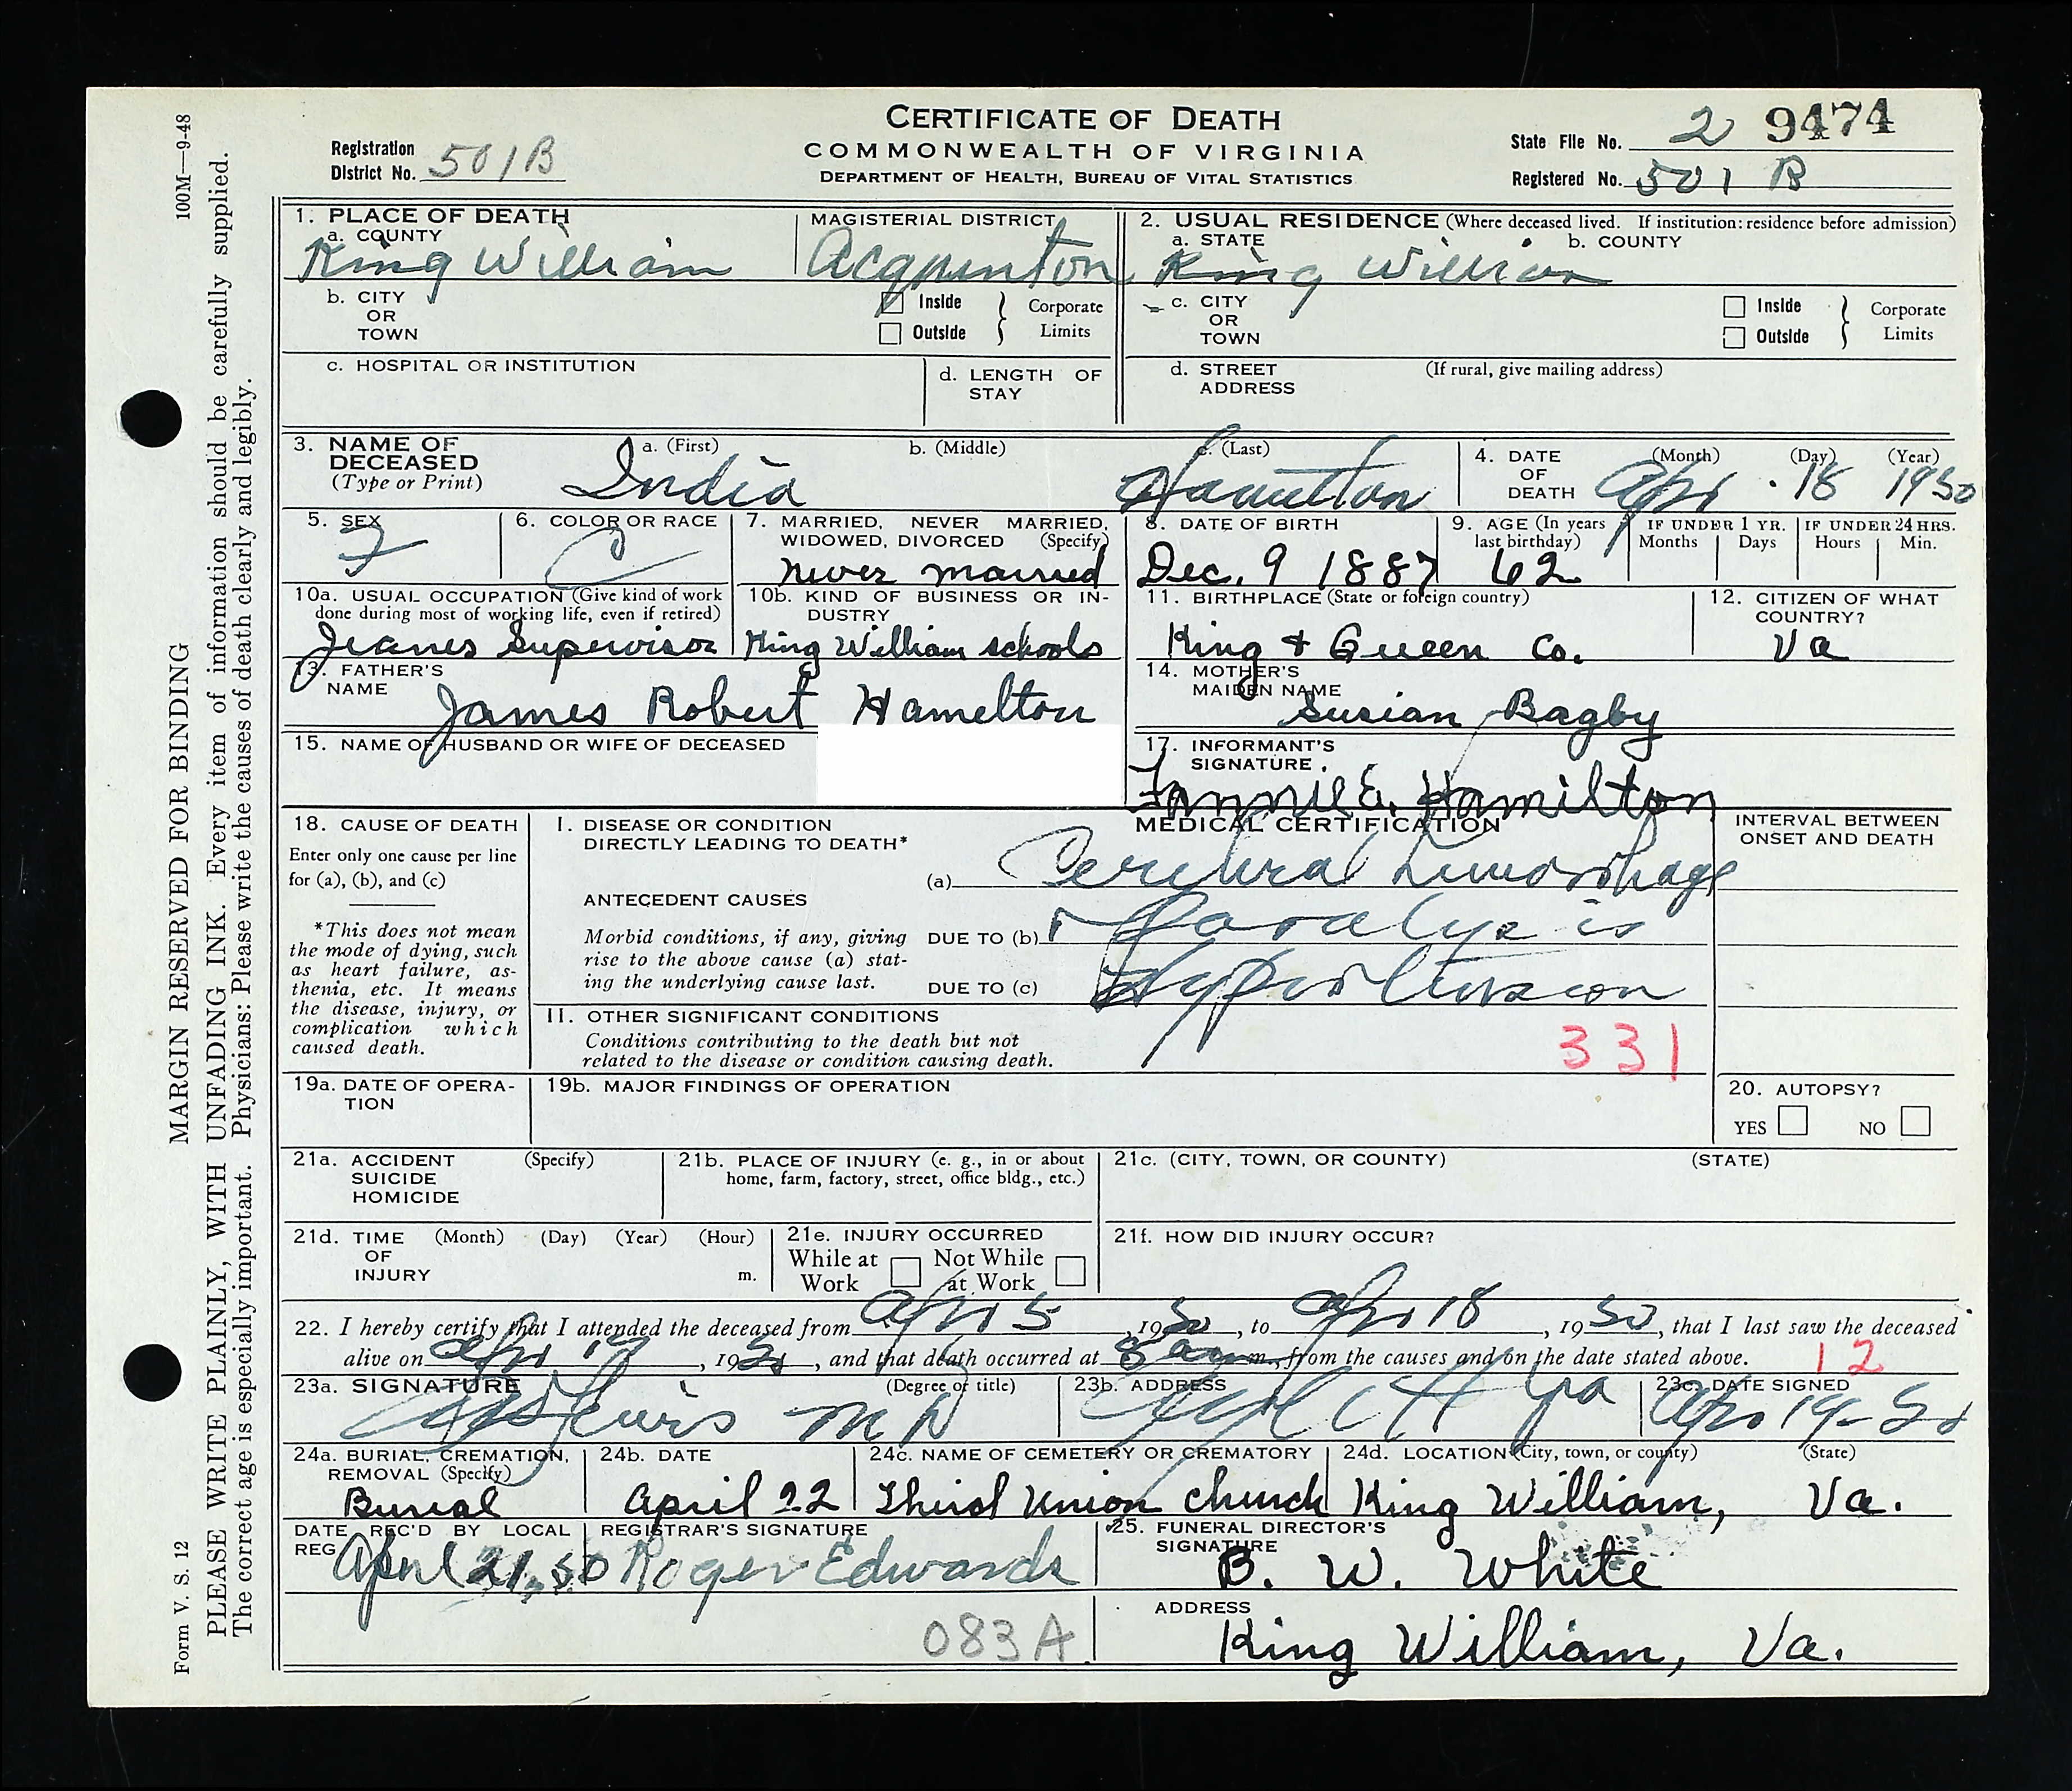 CERTIFICATE OF DEATH
COMMONWEALTH OF VIRGINIA
DEPARTMENT OF HEALTH, BUREAU OF VITAL STATISTICS
Registration District No. 501B
State File No. 2 9474
Registered No. 501 B
100M—9-48
MARGIN RESERVED FOR BINDING
PLEASE WRITE PLAINLY, WITH UNFADING INK. Every item of information should be carefully supplied.
The correct age is especially important. Physicians: Please write the causes of death clearly and legibly.
Form V. S. 12
1. PLACE OF DEATH
a. COUNTY
King William
MAGISTERIAL DISTRICT
Acqninton
2. USUAL RESIDENCE (Where deceased lived. If institution: residence before admission)
a. STATE b. COUNTY
King William
b. CITY OR TOWN
Inside
Outside
Corporate Limits
c. CITY OR TOWN
Inside
Outside
Corporate Limits
c. HOSPITAL OR INSTITUTION
d. LENGTH OF STAY
d. STREET ADDRESS (If rural, give mailing address)
3. NAME OF DECEASED (Type or Print)
a. (First) b. (Middle) c. (Last)
India Hamilton
4. DATE OF DEATH (Month) (Day) (Year)
Apr. 18 1950
5. SEX
F
6. COLOR OR RACE
C
7. MARRIED, NEVER MARRIED, WIDOWED, DIVORCED (Specify)
never married
8. DATE OF BIRTH
Dec. 9 1887
9. AGE (In years last birthday)
62
IF UNDER 1 YR.
Months Days
IF UNDER 24 HRS.
Hours Min.
10a. USUAL OCCUPATION (Give kind of work done during most of working life, even if retired)
Jeanes Supervisor
10b. KIND OF BUSINESS OR INDUSTRY
King William schools
11. BIRTHPLACE (State or foreign country)
King & Queen Co.
12. CITIZEN OF WHAT COUNTRY?
Va
13. FATHER'S NAME
James Robert Hamelton
14. MOTHER'S MAIDEN NAME
Susian Bagby
15. NAME OF HUSBAND OR WIFE OF DECEASED
17. INFORMANT'S SIGNATURE
Fannie E. Hamilton
18. CAUSE OF DEATH
Enter only one cause per line for (a), (b), and (c)
*This does not mean the mode of dying, such as heart failure, asthenia, etc. It means the disease, injury, or complication which caused death.
MEDICAL CERTIFICATION
INTERVAL BETWEEN ONSET AND DEATH
I. DISEASE OR CONDITION DIRECTLY LEADING TO DEATH*
(a) Cerebral Hemorrhage
ANTECEDENT CAUSES
Morbid conditions, if any, giving rise to the above cause (a) stating the underlying cause last.
DUE TO (b) Paralysis
DUE TO (c) Hypertension
II. OTHER SIGNIFICANT CONDITIONS
Conditions contributing to the death but not related to the disease or condition causing death.
331
19a. DATE OF OPERATION
19b. MAJOR FINDINGS OF OPERATION
20. AUTOPSY?
YES NO
21a. ACCIDENT SUICIDE HOMICIDE (Specify)
21b. PLACE OF INJURY (e. g., in or about home, farm, factory, street, office bldg., etc.)
21c. (CITY, TOWN, OR COUNTY) (STATE)
21d. TIME OF INJURY (Month) (Day) (Year) (Hour) m.
21e. INJURY OCCURRED
While at Work Not While at Work
21f. HOW DID INJURY OCCUR?
22. I hereby certify that I attended the deceased from Apr 5, 1950, to Apr 18, 1950, that I last saw the deceased
alive on Apr. 17, 1950, and that death occurred at 8 am., from the causes and on the date stated above.
12
23a. SIGNATURE (Degree or title)
Lewis MD
23b. ADDRESS
Va
23c. DATE SIGNED
Apr 19-50
24a. BURIAL, CREMATION, REMOVAL (Specify)
Burial
24b. DATE
April 22
24c. NAME OF CEMETERY OR CREMATORY
Third Union Church
24d. LOCATION (City, town, or county) (State)
King William, Va.
DATE REC'D BY LOCAL REG.
April 21, 50
REGISTRAR'S SIGNATURE
Roger Edwards
25. FUNERAL DIRECTOR'S SIGNATURE
B. W. White
ADDRESS
King William, Va.
083A